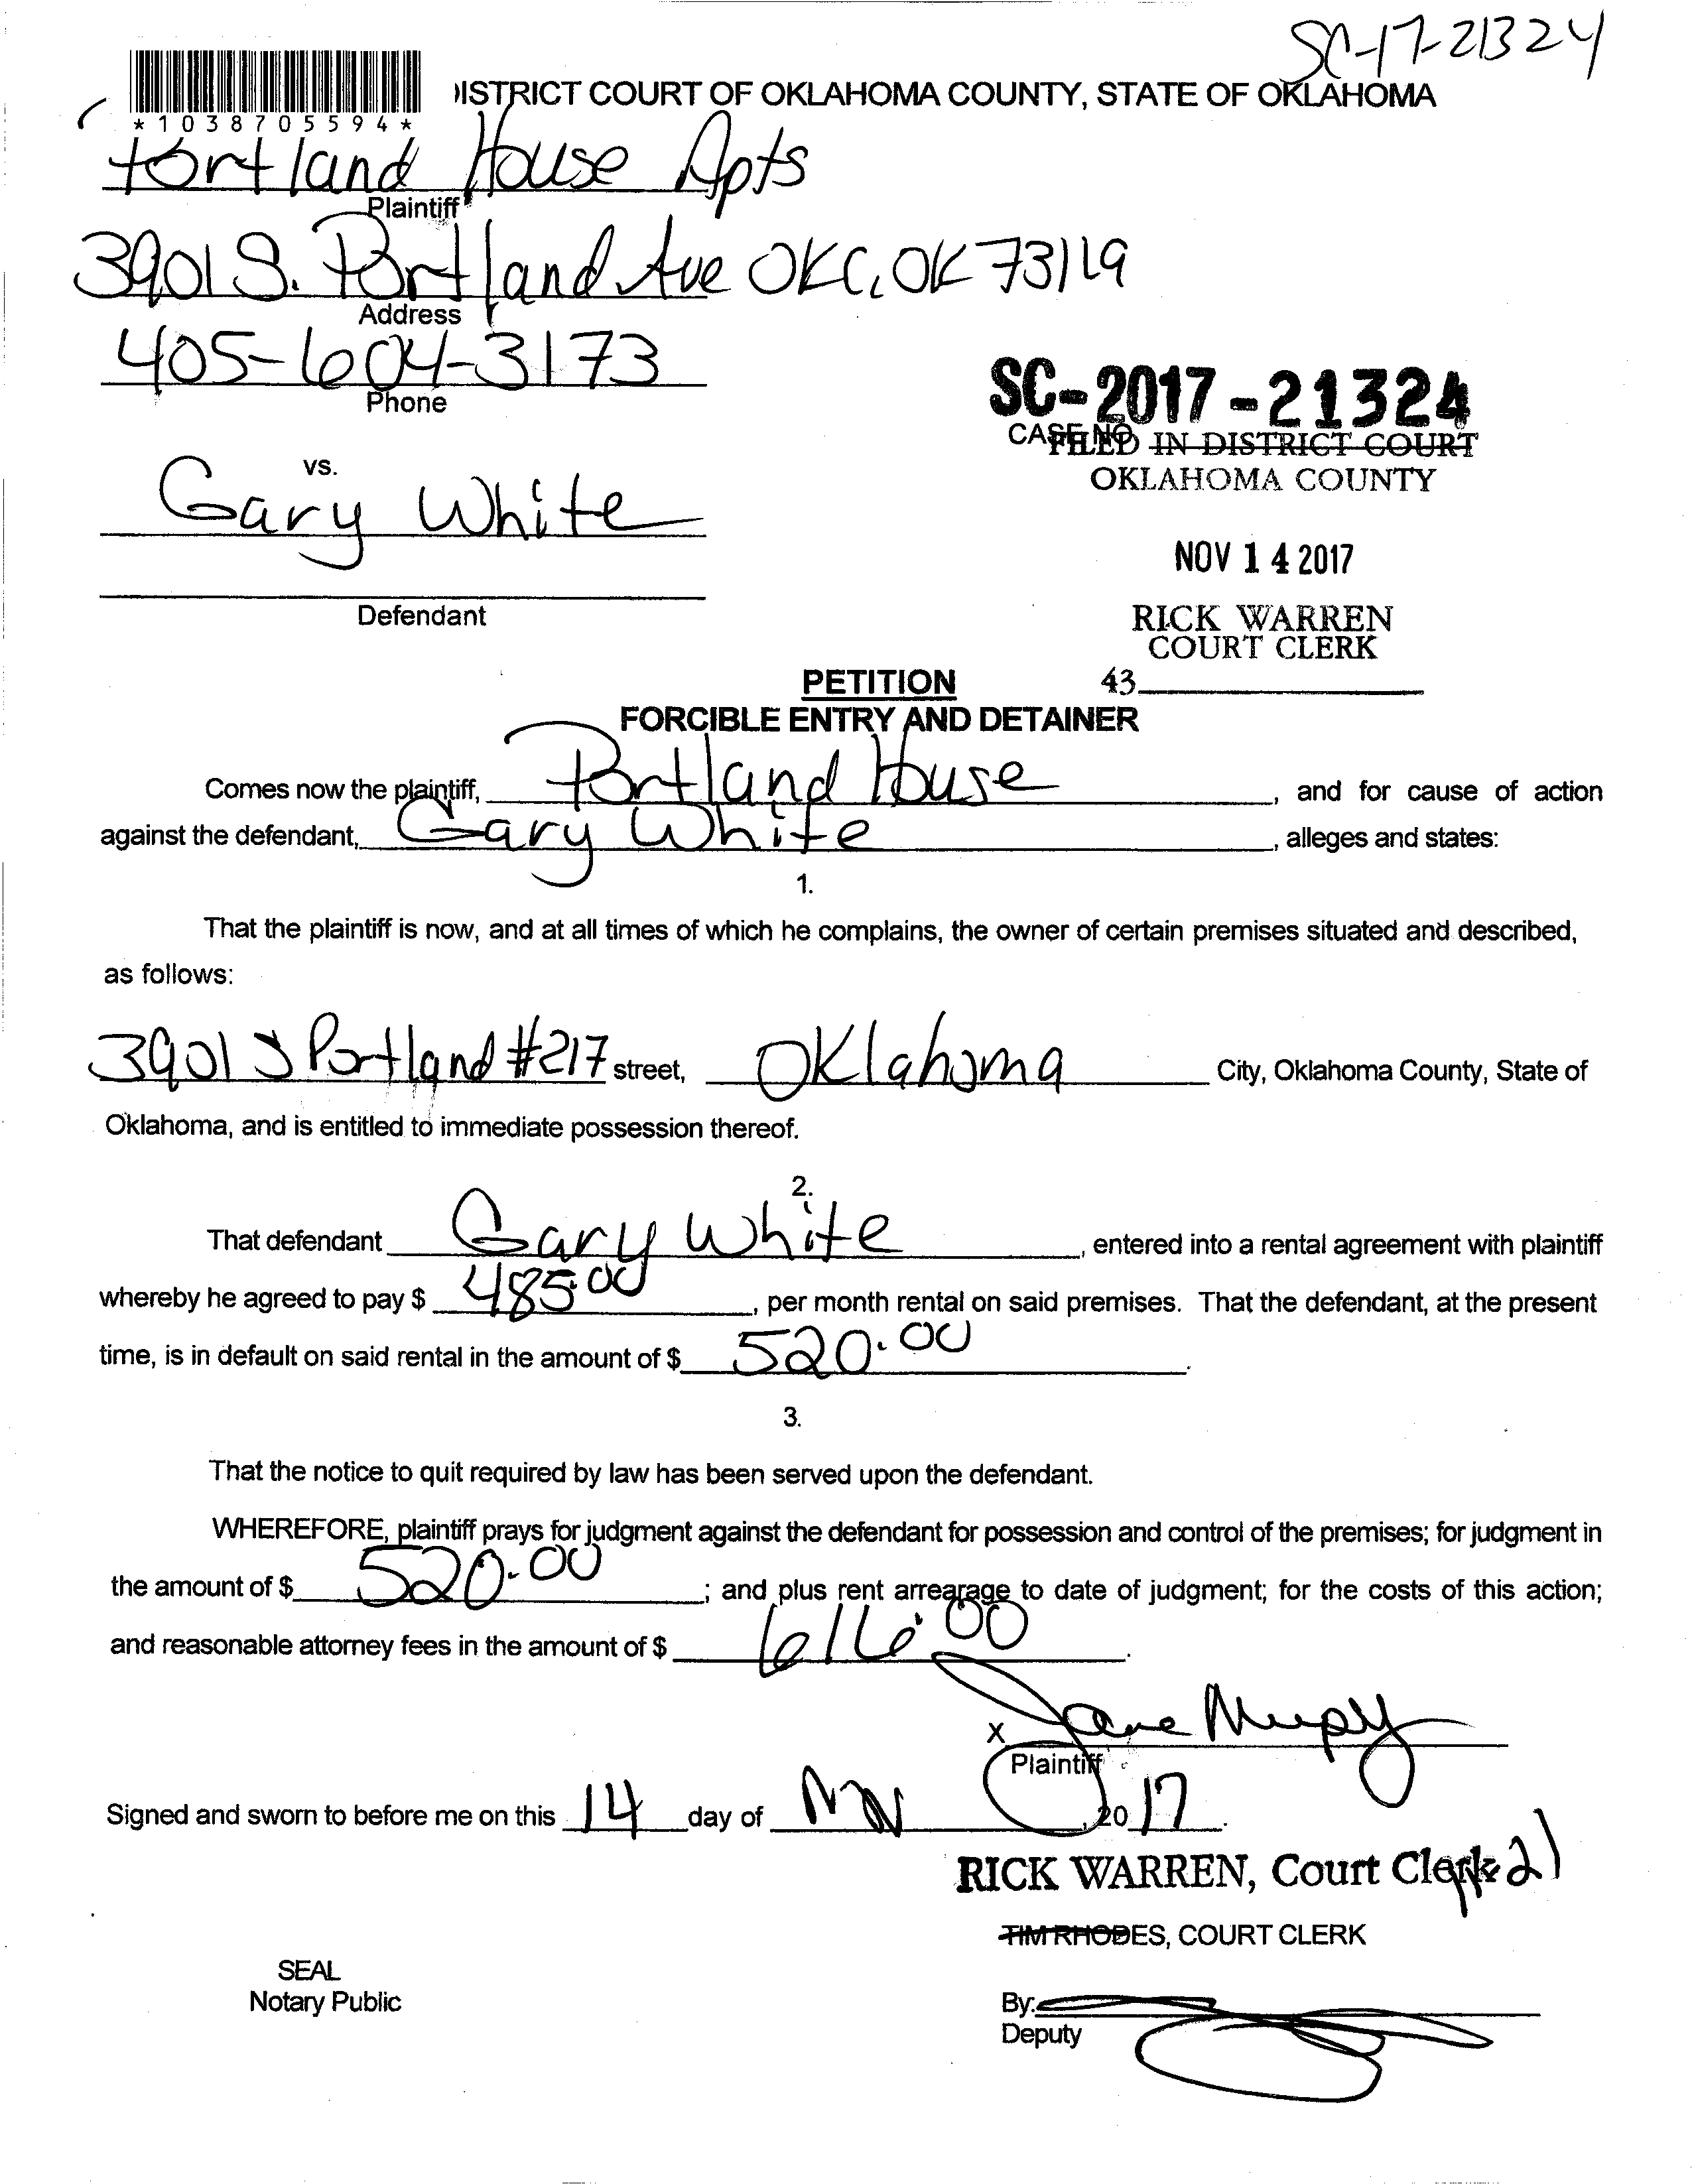 SC-17-21324
*1038705594*
DISTRICT COURT OF OKLAHOMA COUNTY, STATE OF OKLAHOMA
Portland House Apts
Plaintiff
3901 S. Portland Ave OKC, OK 73119
Address
405-604-3173
Phone
SC-2017-21324
CASE NO.
FILED IN DISTRICT COURT
OKLAHOMA COUNTY
vs.
Gary White
NOV 14 2017
Defendant
RICK WARREN
COURT CLERK
43
PETITION
FORCIBLE ENTRY AND DETAINER
Comes now the plaintiff, Portland House, and for cause of action
against the defendant, Gary White, alleges and states:
1.
That the plaintiff is now, and at all times of which he complains, the owner of certain premises situated and described,
as follows:
3901 S Portland #217 street, Oklahoma City, Oklahoma County, State of
Oklahoma, and is entitled to immediate possession thereof.
2.
That defendant Gary White, entered into a rental agreement with plaintiff
whereby he agreed to pay $ 485.00, per month rental on said premises. That the defendant, at the present
time, is in default on said rental in the amount of $ 520.00.
3.
That the notice to quit required by law has been served upon the defendant.
WHEREFORE, plaintiff prays for judgment against the defendant for possession and control of the premises; for judgment in
the amount of $ 520.00; and plus rent arrearage to date of judgment; for the costs of this action;
and reasonable attorney fees in the amount of $ 616.00.
X
Plaintiff
Signed and sworn to before me on this 14 day of Nov, 2017.
RICK WARREN, Court Clerk 21
TIM RHODES, COURT CLERK
SEAL
Notary Public
By:
Deputy